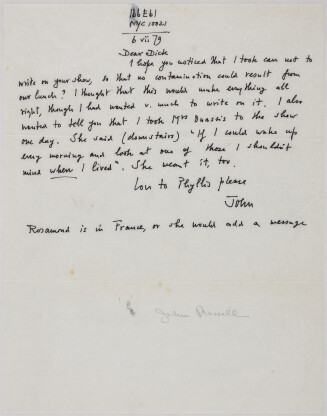 166 E 61
NYC 10021
6 vii 79
Dear Dick
I hope you noticed that I took care not to
write on your show, so that no contamination could result from
our lunch? I thought that this would make everything all
right, though I had wanted v. much to write on it. I also
wanted to tell you that I took Mrs to the show
one day. She said (downstairs) "If I could wake up
every morning and look at one of these I shouldn't
mind where I lived". She meant it, too.
Love to Phyllis please
John
Rosamond is in France, or she would add a message
John Russell